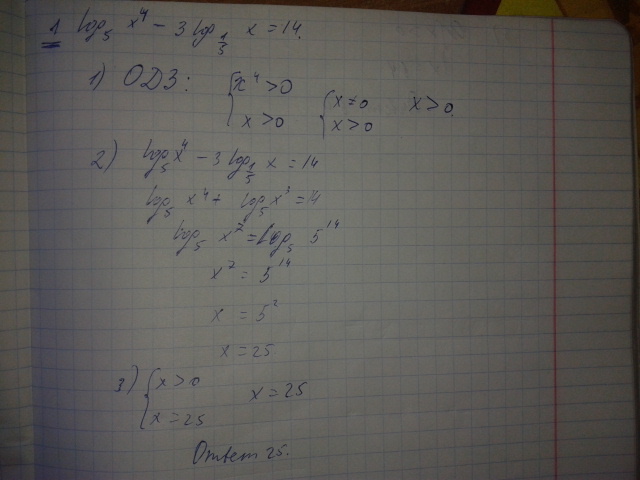 1 log₅ x⁴ - 3 log_{1/5} x = 14.
1) ОДЗ: { x⁴ > 0 { x ≠ 0 x > 0.
x > 0 x > 0
2) log₅ x⁴ - 3 log_{1/5} x = 14
log₅ x⁴ + log₅ x³ = 14
log₅ x⁷ = log₅ 5¹⁴
x⁷ = 5¹⁴
x = 5²
x = 25
3) { x > 0 x = 25
x = 25
Ответ 25.